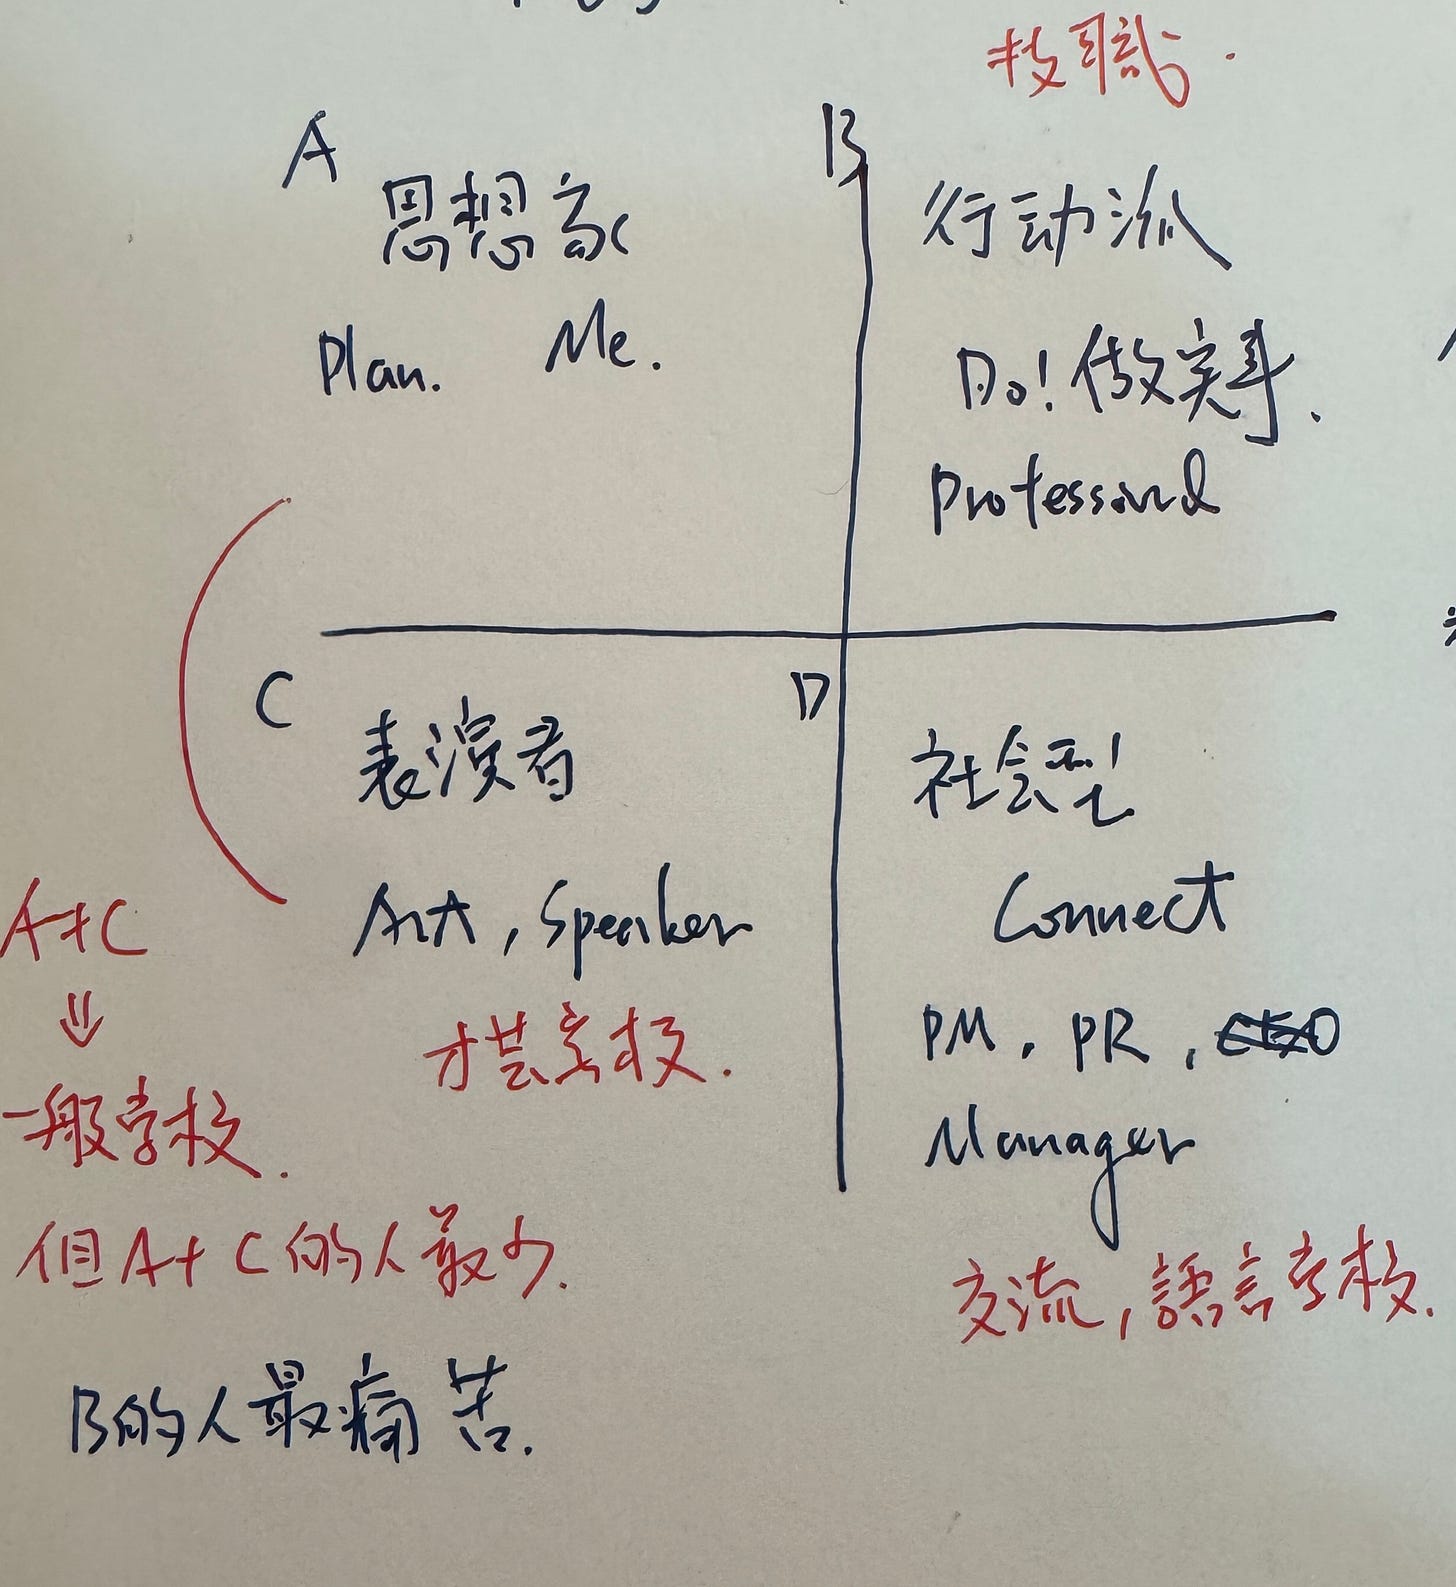 技職.
A
思想家
Plan. Me.
B
行动派
Do! 做実事.
Professional
C
表演者
Art, Speaker
才芸学校.
D
社会型
Connect
PM, PR,
Manager
交流,語言学校.
A+C
⇓
一般学校.
但A+C的人最少.
B的人最痛苦.